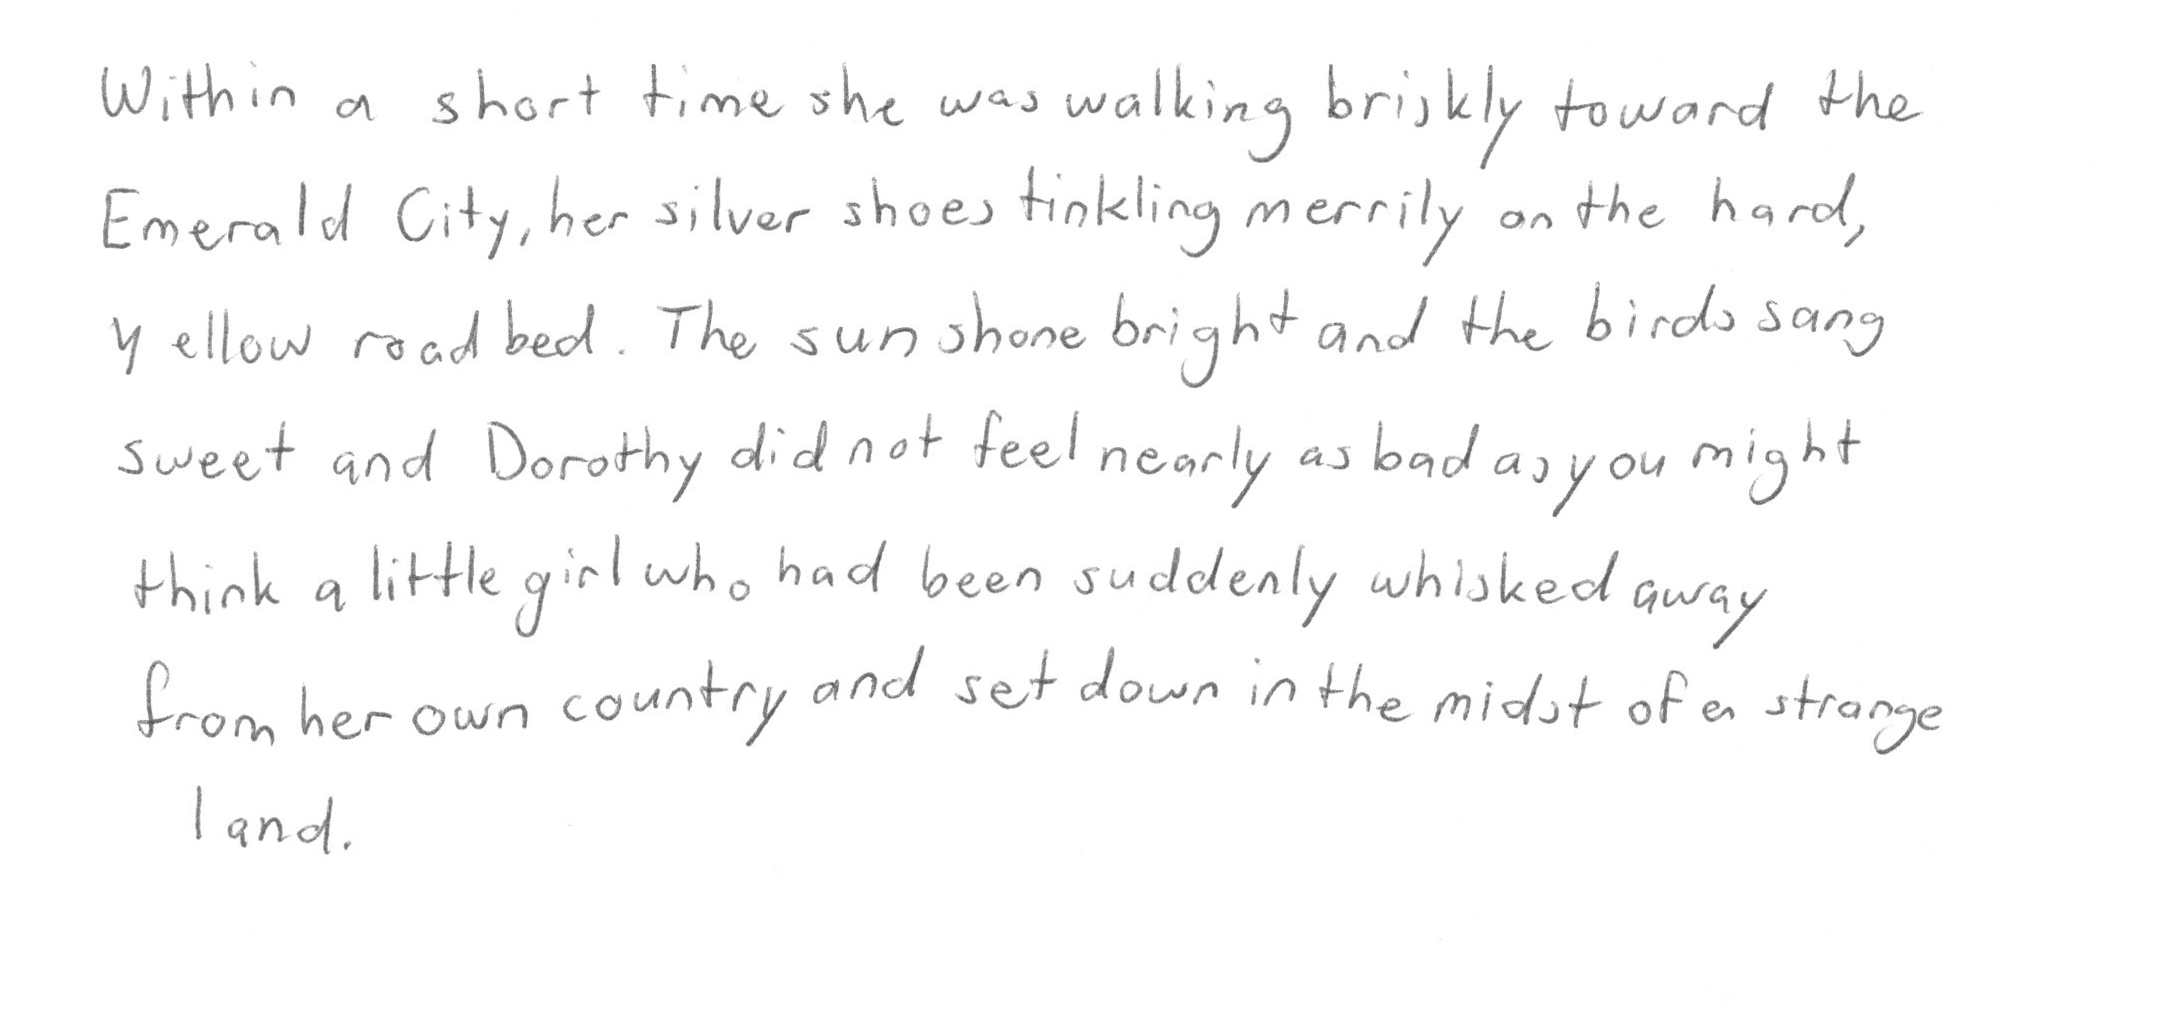 Within a short time she was walking briskly toward the
Emerald City, her silver shoes tinkling merrily on the hard,
yellow road bed. The sun shone bright and the birds sang
sweet and Dorothy did not feel nearly as bad as you might
think a little girl who had been suddenly whisked away
from her own country and set down in the midst of a strange
land.